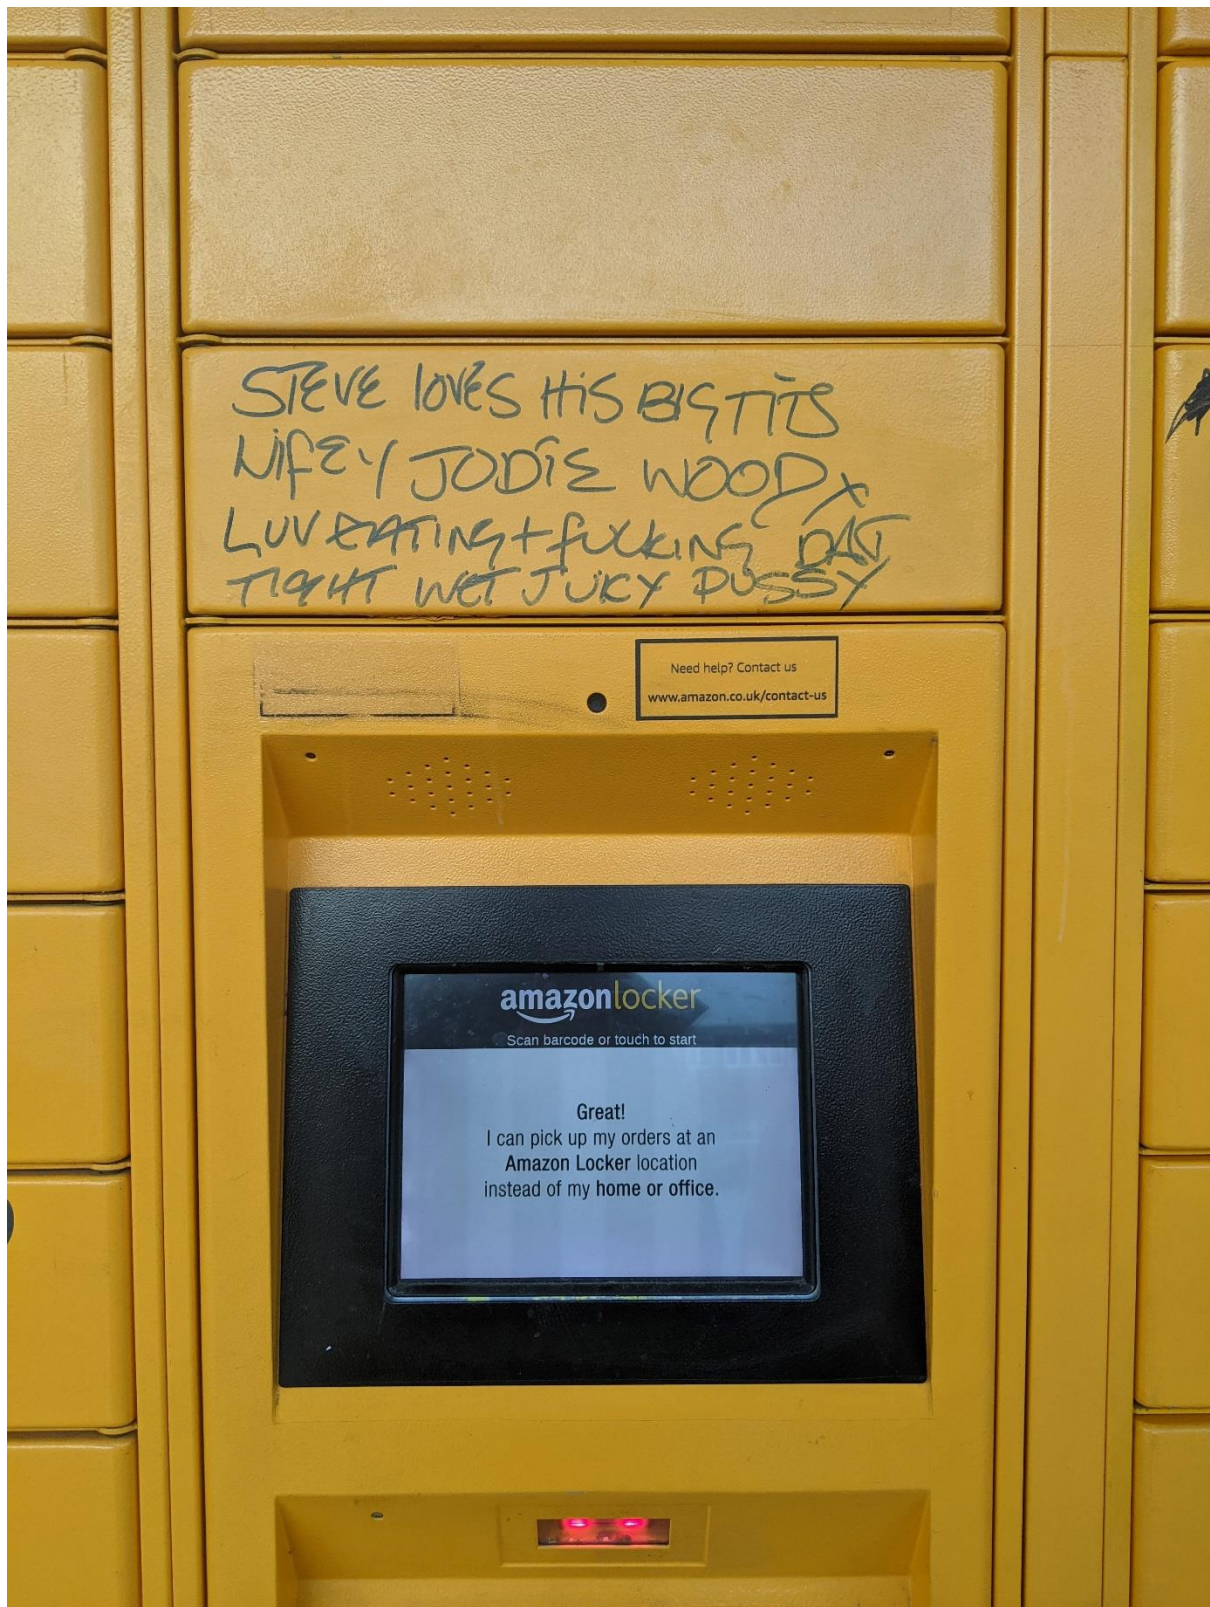 STEVE lOVES HiS BIG TITS
WifEY JODiE WOOD x
LUV EATING + fUCKING DAT
TIGHT WET JUICY PUSSY
Need help? Contact us
www.amazon.co.uk/contact-us
amazonlocker
Scan barcode or touch to start
Great!
I can pick up my orders at an
Amazon Locker location
instead of my home or office.